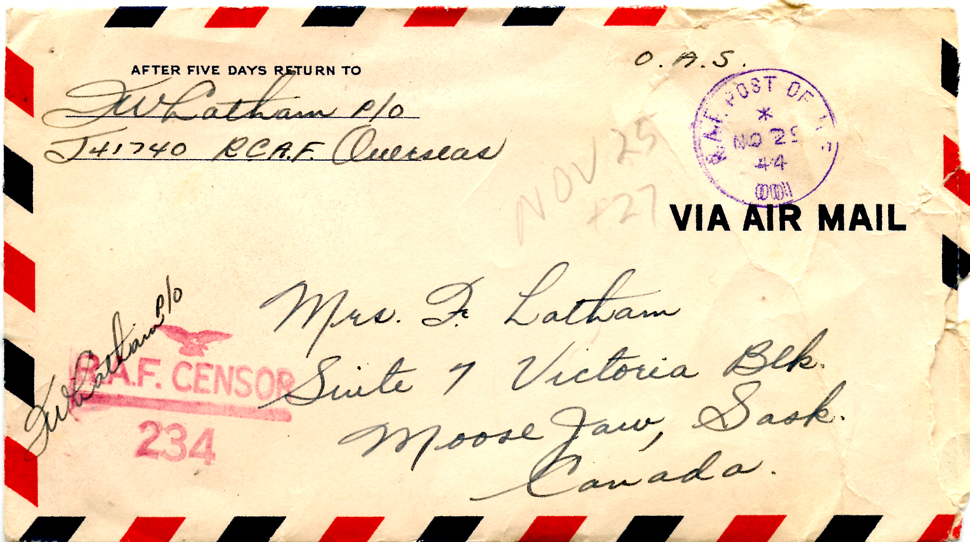 O. A. S.
AFTER FIVE DAYS RETURN TO
FW Latham P/O
J41740 RCAF. Overseas
R.A.F. POST OFFICE
*
NO 29
44
NOV 25
+27
VIA AIR MAIL
Mrs. F. Latham
Suite 7 Victoria Blk.
Moose Jaw, Sask.
Canada.
FW Latham P/O
R.A.F. CENSOR
234